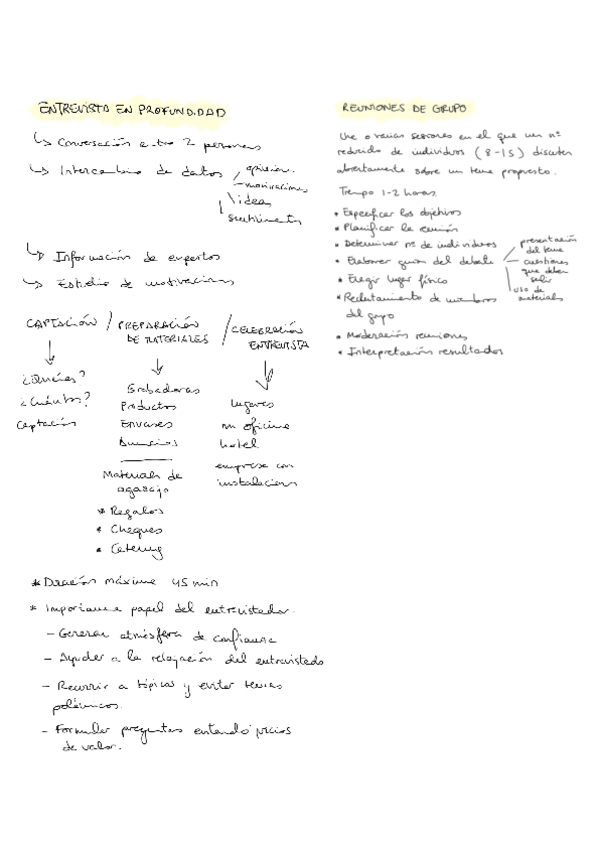 ENTREVISTA EN PROFUNDIDAD
↳ Conversación entre 2 personas
↳ Intercambio de datos
opinión
motivaciones
ideas
sentimientos
↳ Información de expertos
↳ Estudio de motivaciones
CAPTACIÓN / PREPARACIÓN DE MATERIALES / CELEBRACIÓN ENTREVISTA
¿Quiénes?
¿Cuántos?
Captación
Grabadoras
Productos
Envases
Anuncios
Materiales de
agasajo
* Regalos
* Cheques
* Catering
lugares
mi oficina
hotel
empresa con
instalaciones
* Duración máxima 45 min
* Importance papel del entrevistador.
- Generar atmósfera de confianza
- Ayudar a la relajación del entrevistado
- Recurrir a tópicos y evitar temas
polémicos.
- Formular preguntas evitando juicios
de valor.
REUNIONES DE GRUPO
Una o varias sesiones en el que un nº
reducido de individuos (8-15) discuten
abiertamente sobre un tema propuesto.
Tiempo 1-2 horas.
* Especificar los objetivos
* Planificar la reunión
* Determinar nº de individuos
* Elaborar guión del debate
presentación
del tema
cuestiones
que deben
salir
uso de
materiales
* Elegir lugar físico
* Reclutamiento de miembros
del grupo
* Moderación reuniones
* Interpretación resultados